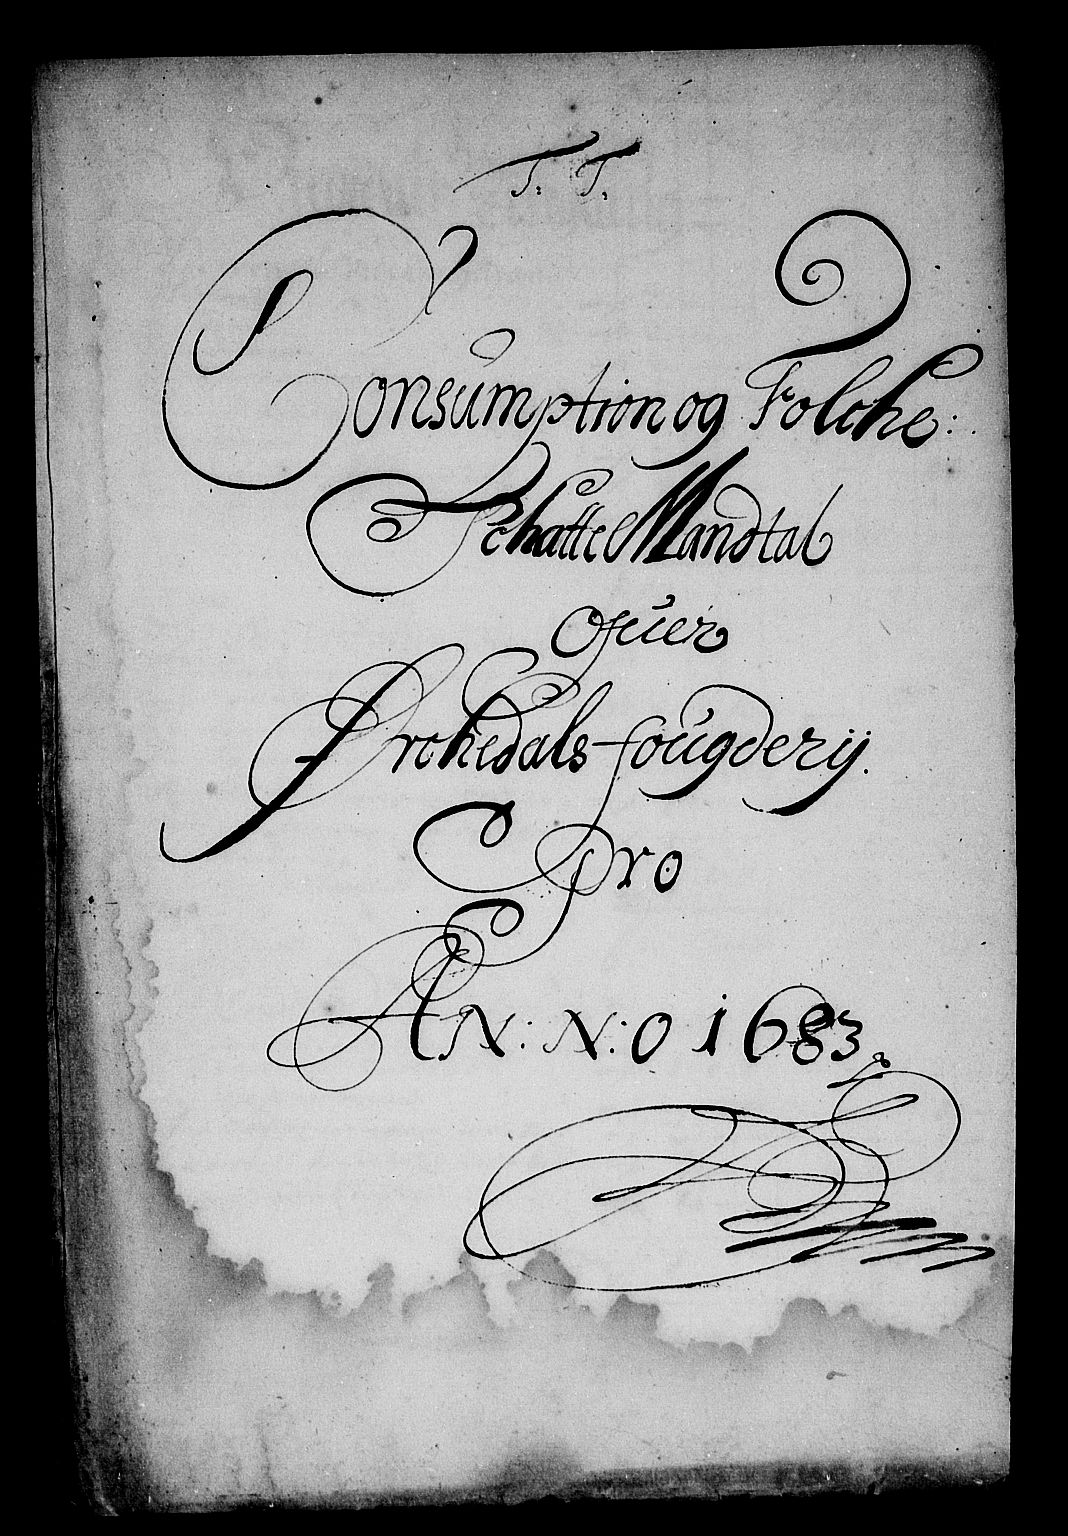 T: T:
Consumption og Folche:
Schatte Mandtal
ofuer
Ørchedals-fougderij.
Pro
AN:N:O 1683